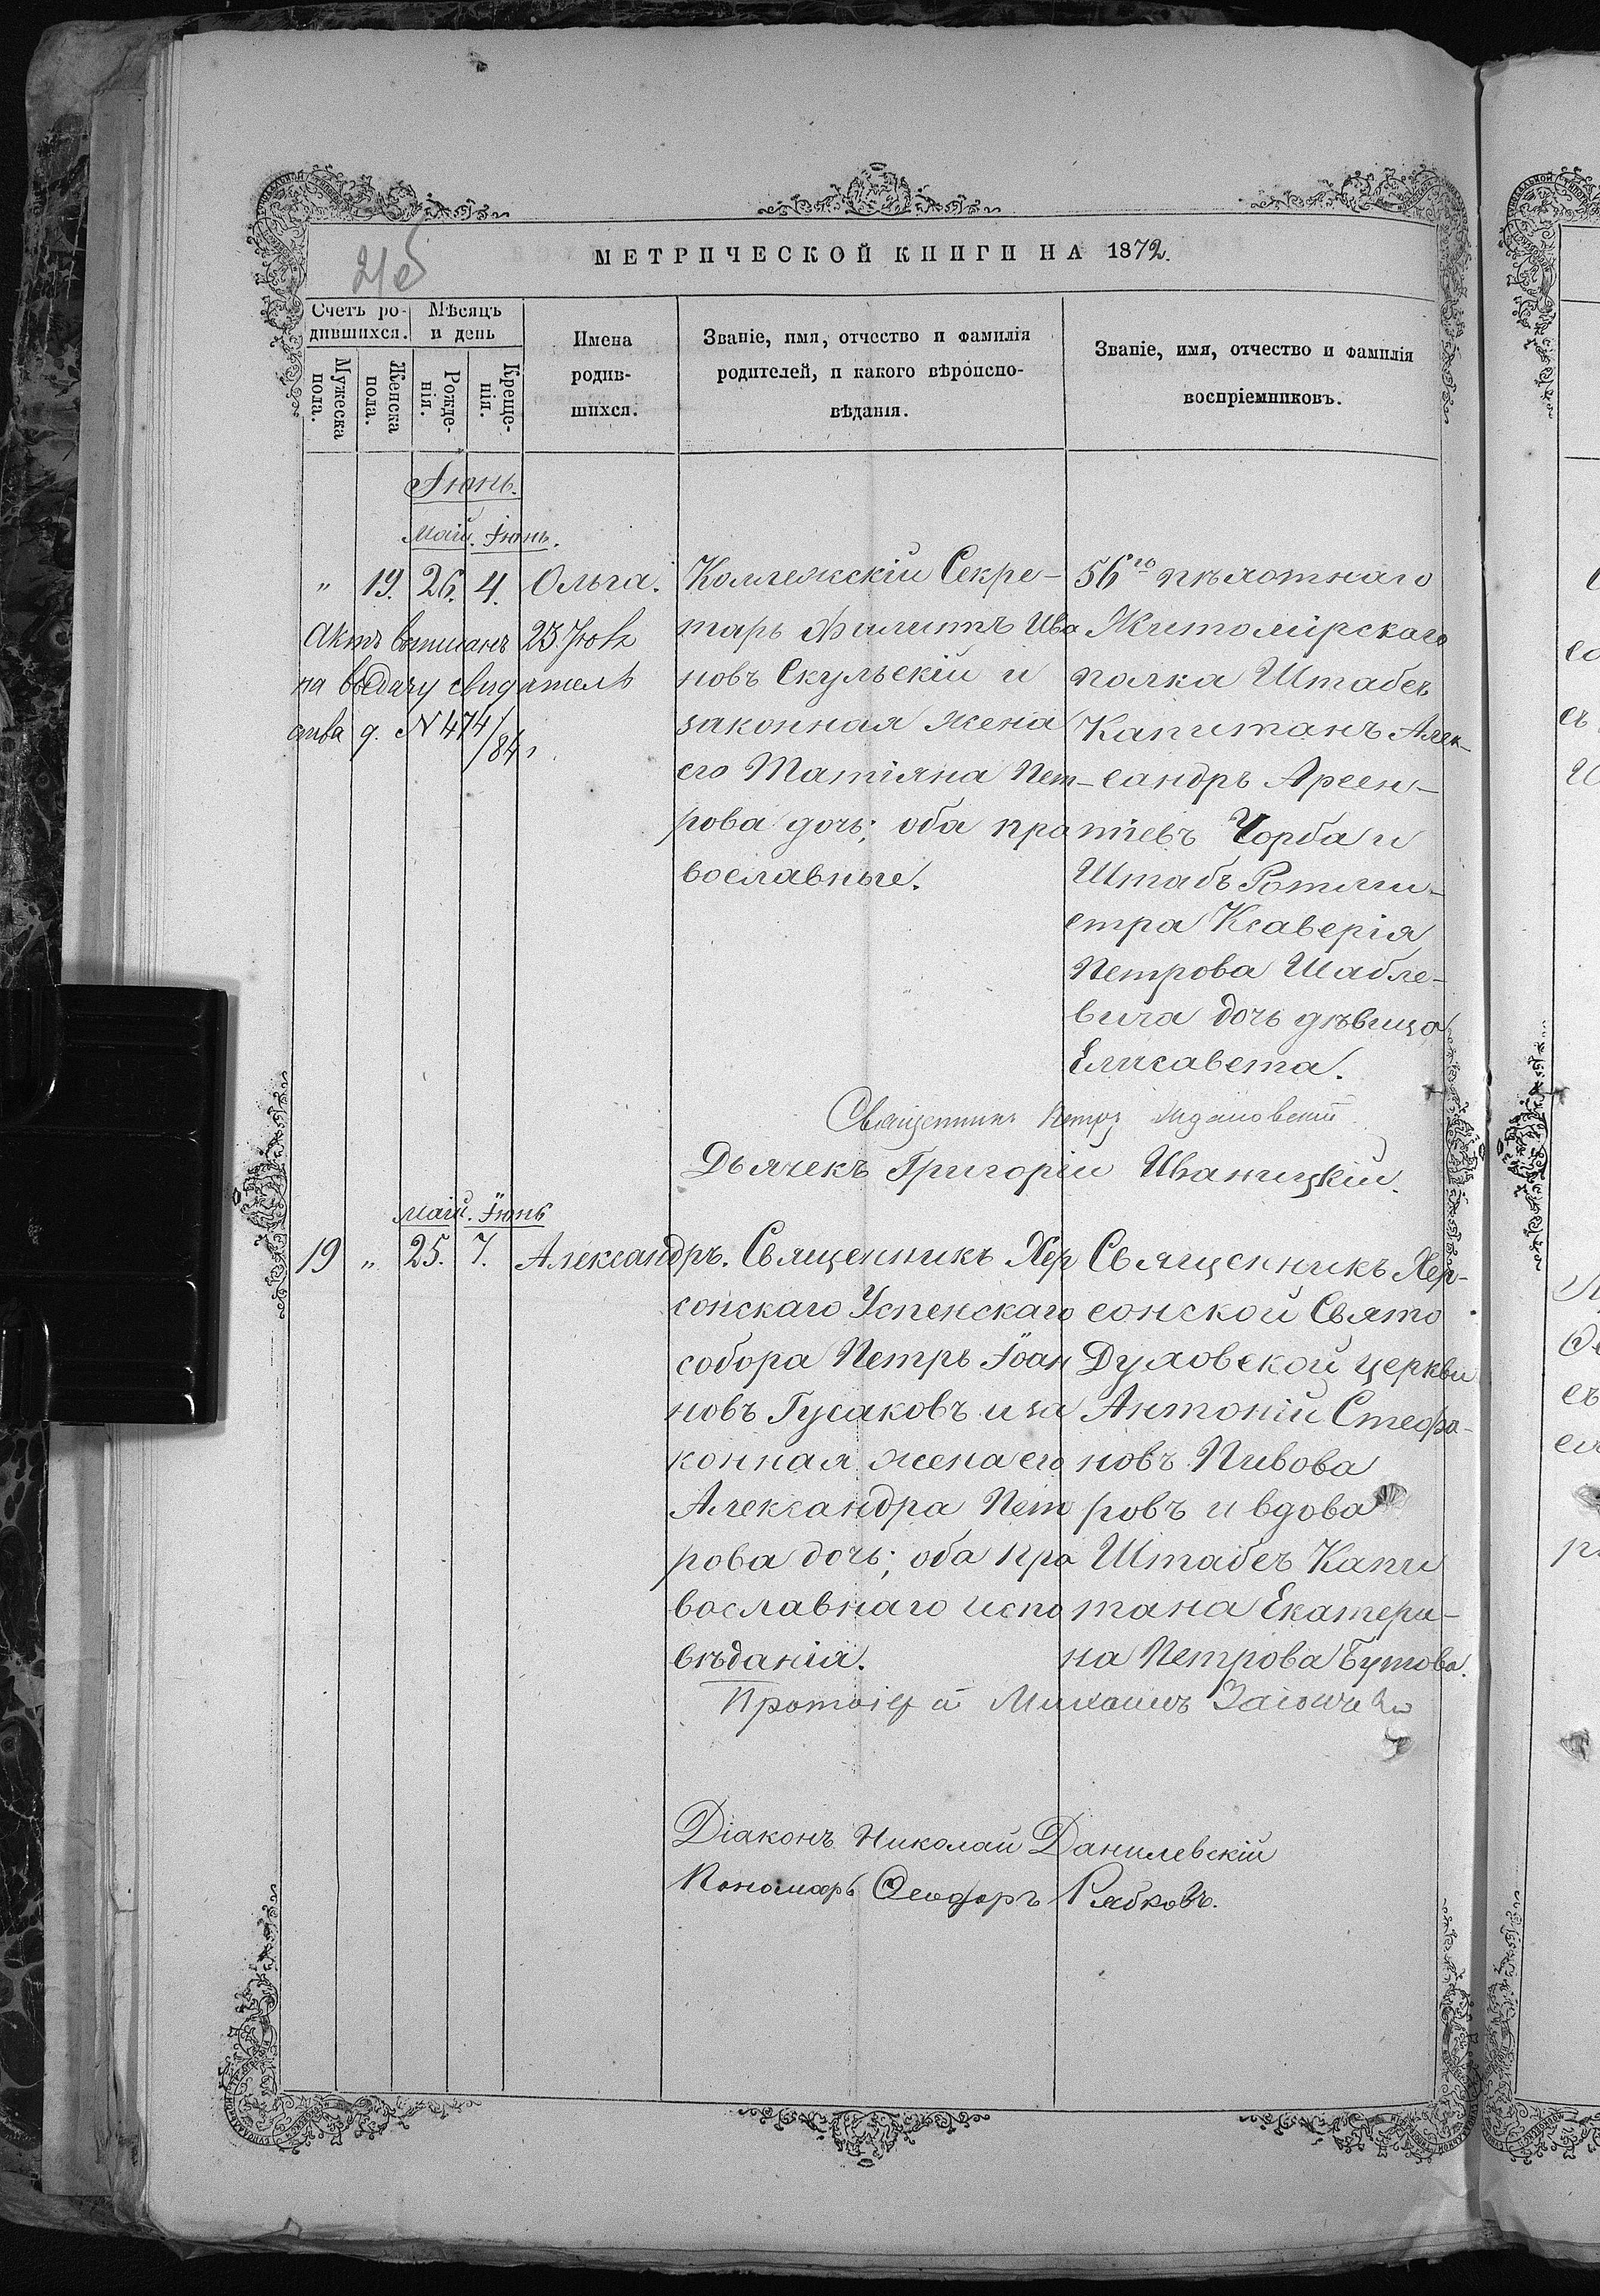 МЕТРИЧЕСКОЙ КНИГИ НА 1872.
Счетъ ро-
дившихся.
Мѣсяцъ
и день
Мужеска
пола.
Женска
пола.
Рожде-
нія.
Креще-
нія.
Имена
родив-
шихся.
Званіе, имя, отчество и фамилія
родителей, и какого вѣроиспо-
вѣданія.
Званіе, имя, отчество и фамилія
воспріемниковъ.
Іюнь.
Май. Іюнь.
" 19. 26. 4. Ольга.
Актъ выписанъ 23
на выдачу свидѣтель
ства д. N 474/84
Коллежскій Секре-
тарь Филиппъ Ива
новъ Скульскій и
законная жена
его Татіяна Пет-
рова дочь; оба пра
вославные.
56го пѣхотнаго
Житомірскаго
полка Штабсъ
Капитанъ Алек-
сандръ Арсен-
тіевъ Чорба и
Штабъ Ротми-
стра Ксаверія
Петрова Шабле-
вича дочь дѣвица
Елисавета.
Священникъ Петръ
Дьячекъ Григорій Иваницкій.
Май. Іюнь
19 " 25. 7. Александръ.
Священникъ Хер
сонскаго Успенскаго
собора Петръ Іоан
новъ Гусаковъ и за
конная жена его
Александра Пет
рова дочь; оба пра
вославнаго испо
вѣданія.
Священникъ Хер-
сонской Свято
Духовской церкви
Антоній Стефа-
новъ Пивова
ровъ и вдова
Штабсъ Капи
тана Екатери-
на Петрова Бутова.
Протоіерей Михаилъ
Діаконъ Николай Данилевскій
Пономарь Ѳеодоръ Рябковъ.